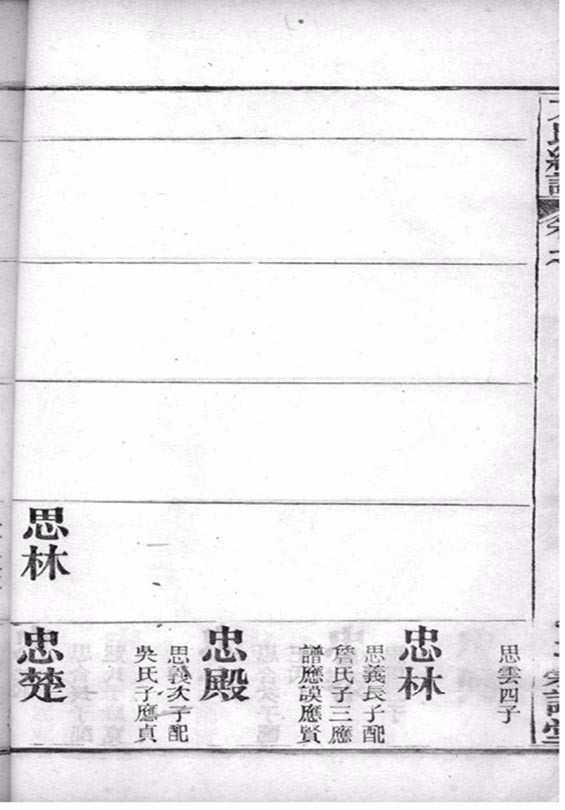 思雲四子
忠林
思義長子配
詹氏子三應
譜應謨應賢
忠殿
思義次子配
吳氏子應貞
思林
忠楚